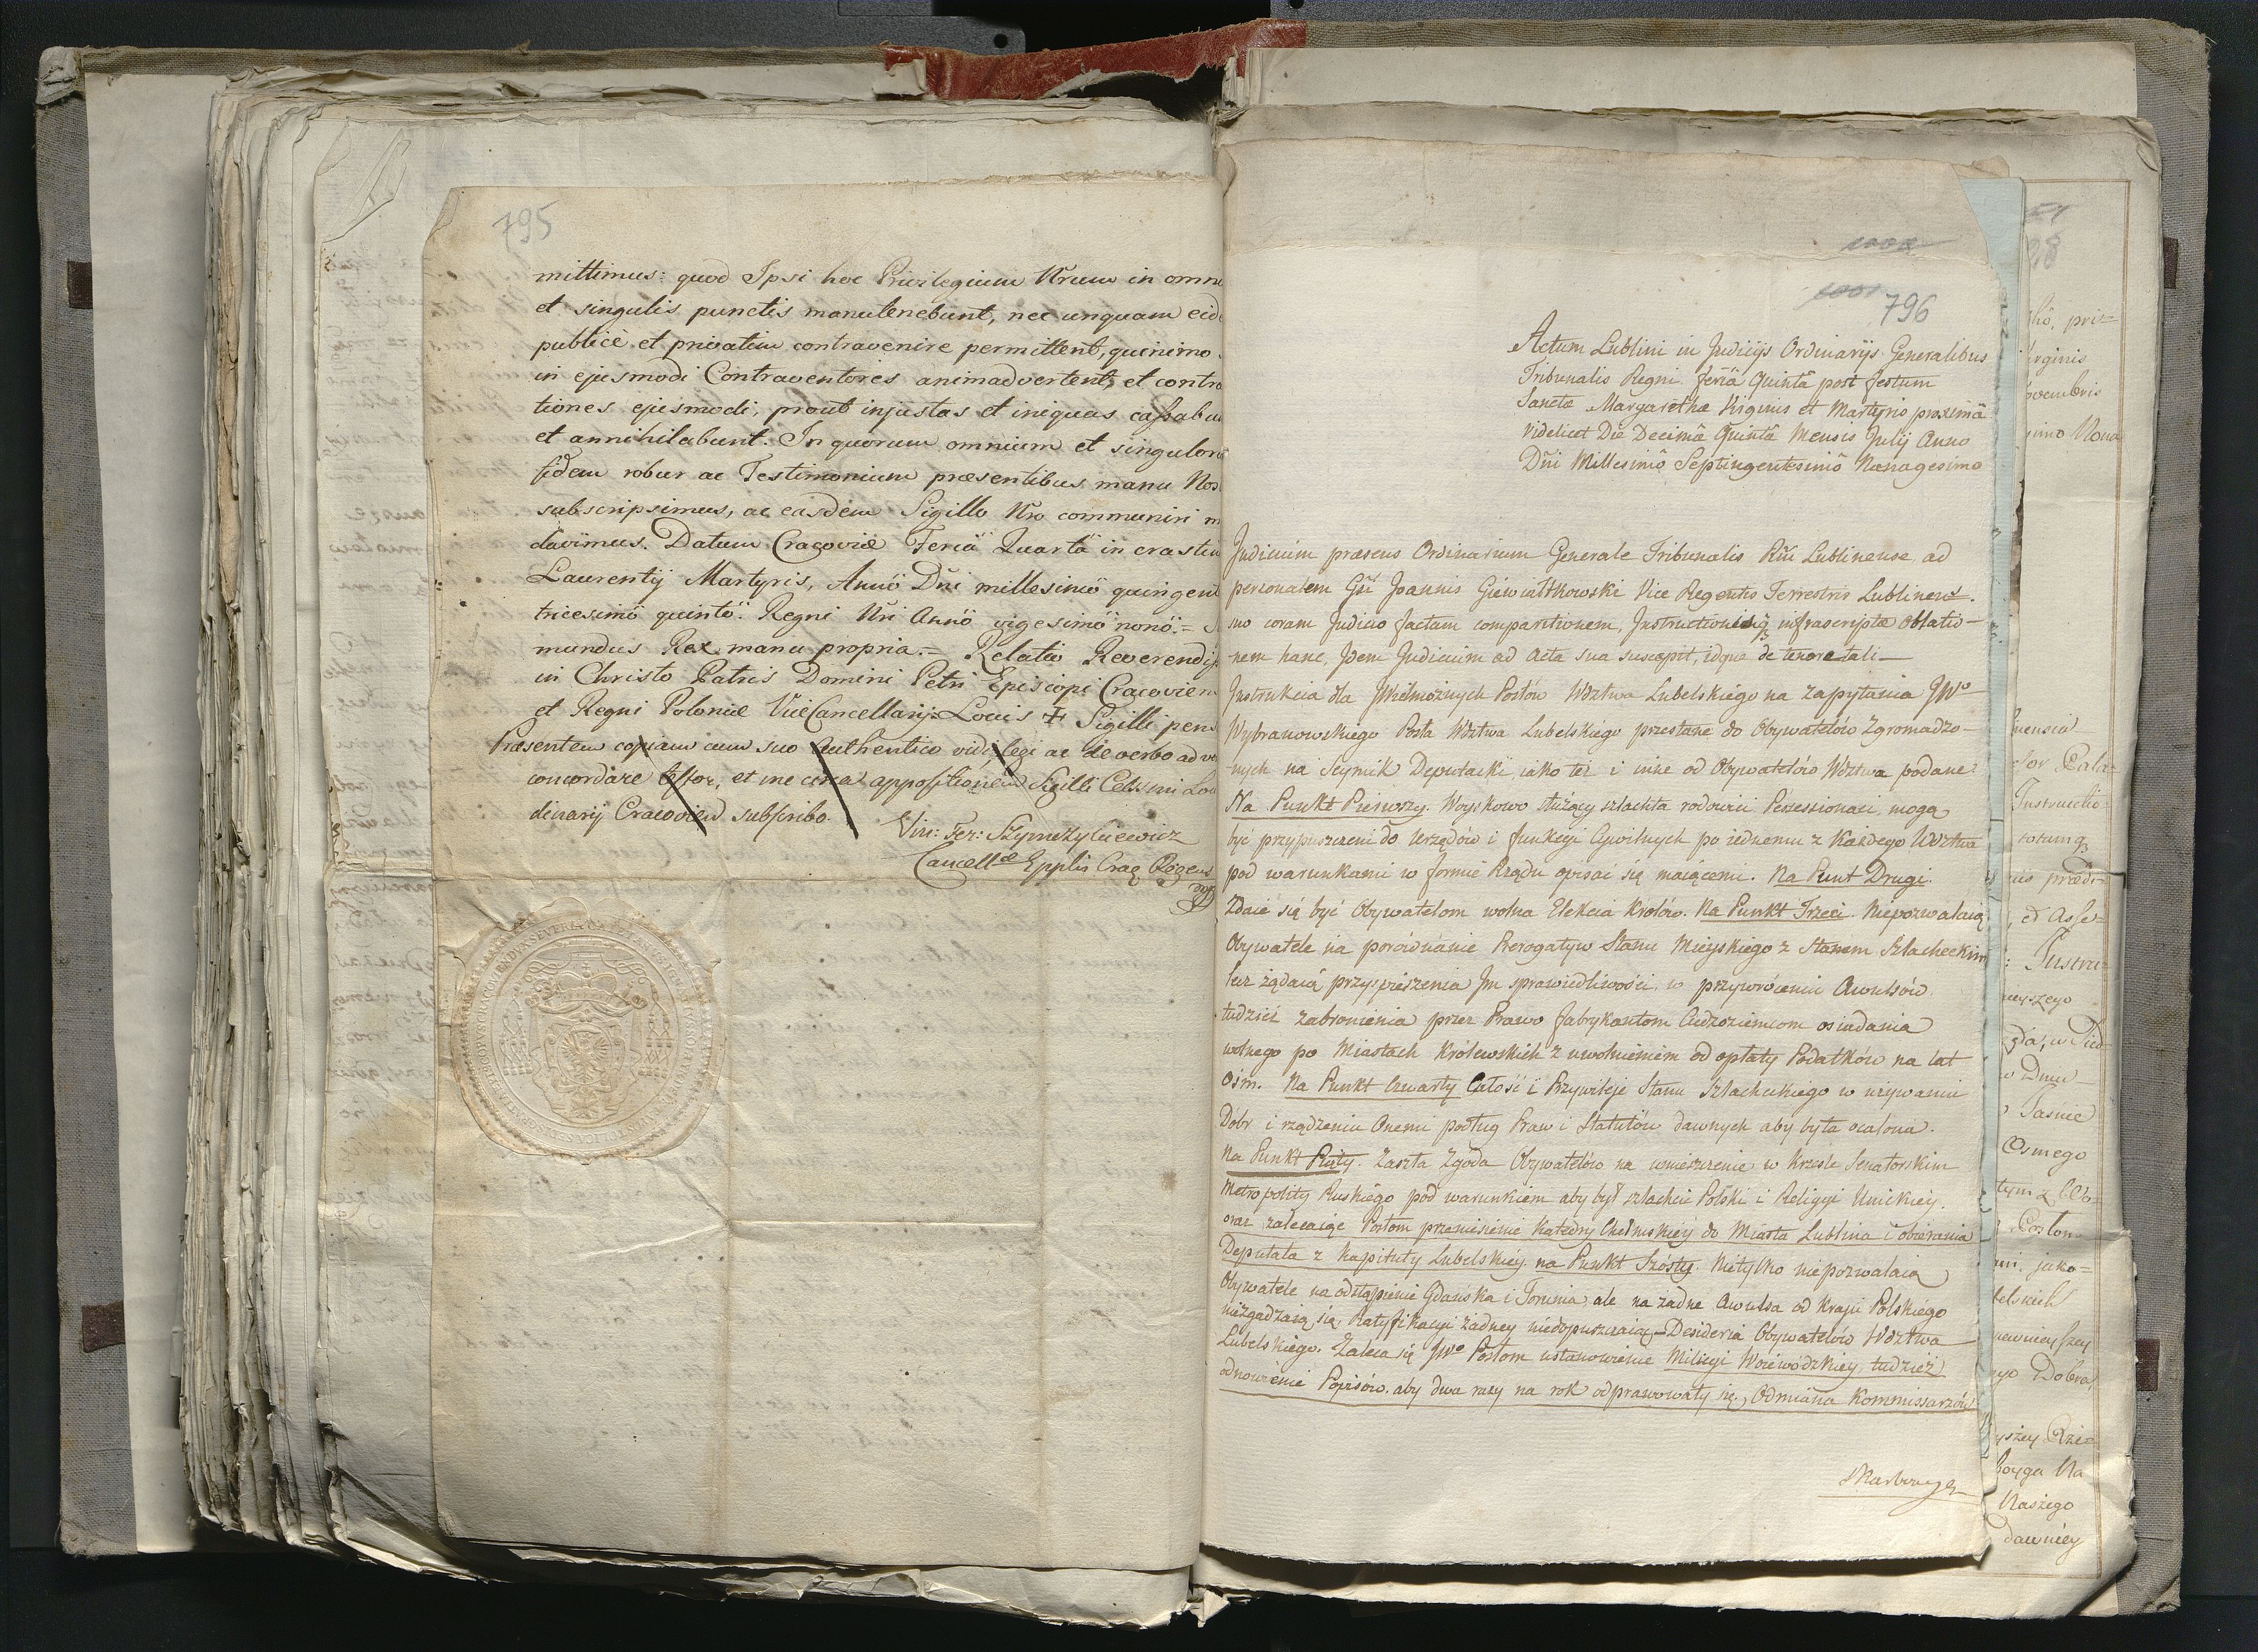 795
mittimus: quod Ipsi hoc Privilegium Nrum in omni
et singulis punctis manutenebunt, nec unquam eid
publicè et privatim contravenire permittent, quinimo
in ejusmodi Contraventores animadvertent, et contra
tiones ejusmodi, prout injustas et iniquas cassabu
et annihilabunt. In quorum omnium et singulor
fidem robur ac Testimonium præsentibus manu Nos
subscripsimus, ac easdem Sigillo Nro communiri m
davimus. Datum Cracoviæ Feriâ Quartâ in crastin
Laurentij Martyris, Annô Dni millesimô quingent
tricesimô quintô. Regni Nri Annô vigesimô nonô.= S
mundus Rex manu propria.= Relatio Reverendis
in Christo Patris Domini Petri Episcopi Cracovien
et Regni Poloniæ ViceCancellarij= Locus Sigilli pens
Præsentem copiam cum suo Authentico vidi, legi ac de verbo ad ve
concordare testor, et me circa appositionem Sigilli Celssimi Loc
dinarij Cracovien subscribo.
Vin: Fer:
Cancellæ Epplis Crac Regens
mp
796
Actum Lublini in Judicijs Ordinarijs Generalibus
Tribunalis Regni feriâ Quintâ post festum
Sanctæ Margarethæ Virginis et Martyris proximâ
videlicet Die Decimâ Quintâ Mensis Julij Anno
Dñi Millesimô Septingentesimô Nonagesimo
Judicium præsens Ordinarium Generale Tribunalis Rni Lublinense ad
personalem Gsi Joannis Giewiałtkowski Vice Regentis Terrestris Lublinens.
suo coram Judicio factam comparitionem, Instructionisq infrascriptæ oblatio-
nem hanc, Idem Judicium ad Acta sua suscepit, idque de tenore tali-
Instrukcia dla JWielmożnych Posłów Wdztwa Lubelskiego na zapytania JWo
Wybranowskiego Posła Wdztwa Lubelskiego przesłane do Obywatelów zgromadzo-
nych na Seymik Deputacki, iako też i inne od Obywatelów Wdztwa podane
Na Punkt Pierwszy. Woyskowo służący szlachta rodowici Possessionaci, mogą
być przypuszczeni do Urzędów i funkcyi Cywilnych po iednemu z każdego Wdztwa
pod warunkami w formie Rządu opisać się maiącemi. Na Punt Drugi.
Zdaie się być Obywatelom wolna Elekcia Krolów. Na Punkt Trzeci. Niepozwalaią
Obywatele na porównanie Prerogatyw Stanu Mieyskiego z Stanem Szlacheckim
lecz żądaią przyspieszenia Im sprawiedliwości, w przywróceniu Awulsów
tudzież zabronienia przez Prawo fabrykantom Cudzoziemcom osiadania
wolnego po Miastach Królewskich z uwolnieniem od opłaty Podatków na lat
Ośm. Na Punkt Czwarty Całość i Przywileje Stanu Szlacheckiego w używaniu
Dóbr i rządzeniu Onemi podług Praw i Statutów dawnych aby była ocalona.
Na Punkt Piąty. Zaszła Zgoda Obywatelów na umieszczenie w Krzesle Senatorskim
Metropolity Ruskiego pod warunkiem aby był szlachcic Polski i Religyi Unickiey.
oraz zalecaiąc Posłom przeniesienie Katedry Chełmskiey do Miasta Lublina i obierania
Deputata z Kapituły Lubelskiey. na Punkt Szósty. Nietylko niepozwalaią
Obywatele na odstąpienie Gdańska i Torunia, ale na żadne Awulsa od Kraju Polskiego
niezgadzaią się, Ratyfikacyi żadney niedopuszczaiąc,-Desideria Obywatelów Wdztwa
Lubelskiego. Zaleca się JWo Posłom ustanowienie Milicyi Woiewodzkiey, tudzież
odnowienie Popisów. aby dwa razy na rok odprawowały się, Odmiana Kommissarzów
Skarbowych